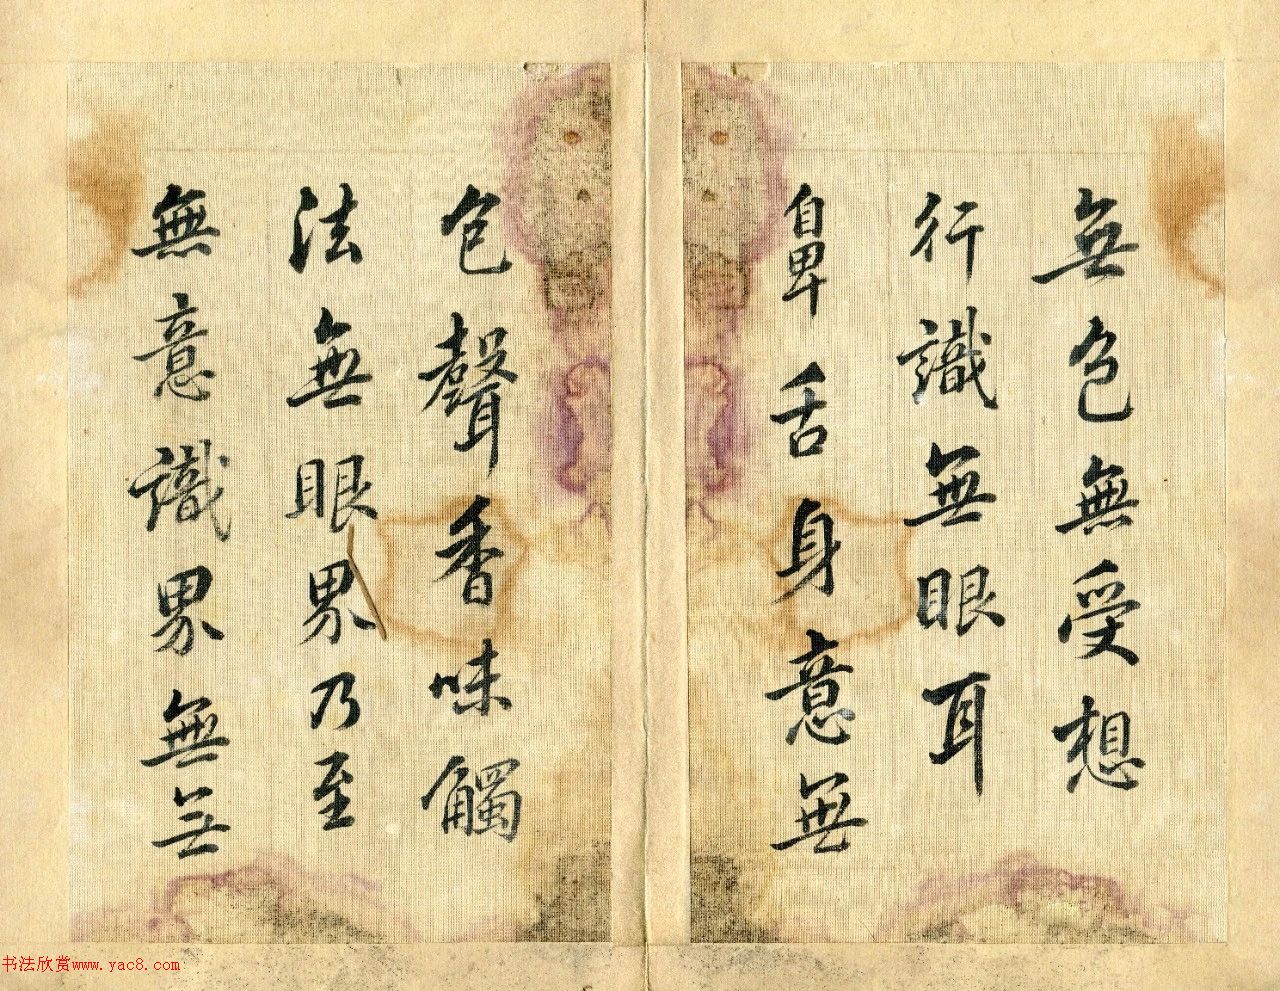 無色無受想
行識無眼耳
鼻舌身意無
色聲香味觸
法無眼界乃至
無意識界無無
书法欣赏www.yac8.com